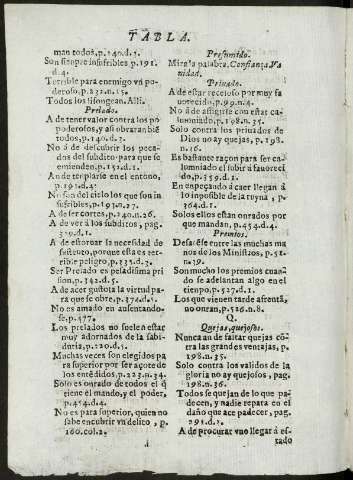 TABLA.
man todos, p.240.d.5.
Son siempre insufribles p.191.
d.4.
Terrible para enemigo vn po-
deroso, p.232.n.15.
Todos los lisongean. Alli.
Prelado.
A de tener valor contra los po
poderosos, y assi obraran bie
todos, p.140.d.3.
No á de descubrir los peca-
dos del subdito para que se
emienden, p.152.d.1.
An de templarse en el entono,
p.191.d.4.
No son del cielo los que son in
sufribles, p.193.n.27.
A de ser cortes, p.240.n.26.
A de ver á los subditos, pag.
329.d.1.
A de estoruar la necesidad de
sustento, porque esta es ter-
rible peligro, p.333.d.3.
Ser Prelado es pesadisima pri
sion, p.342.d.5.
A de acer gustosa la virtud pa-
ra que se obre, p.374.d.5.
No es amado en ausentando-
se, p.477.
Los prelados no suelen estar
muy adornados de la sabi-
duria, p.220.d.5.
Muchas veces son elegidos pa
ra superior por ser açote de
los entẽdidos, p.223.n.34.
Solo es onrado de todos el q̃
tiene el mando, y el poder,
p.454.d.4.
No es para superior, quien no
sabe encubrir vn delito, p.
160.col.2.
Presumido.
Mira la palabra. Confiança, Va
nidad.
Priuado.
A de estar receloso por muy fa
uorecido, p.99.n.4.
No á de afligirse con estas ca-
lumnias, p.198.n.35.
Solo contra los priuados de
Dios no ay quejas, p.198.
n.16.
Es bastante raçon para ser ca-
lumniado el subir á fauoreci-
do, p.359.d.1.
En enpeçando á caer llegan á
lo inposible de la ruyna, p.
364.d.1.
Solos ellos estan onrados por
que mandan, p.454.d.4.
Premios.
Desaçese entre las muchas ma
nos de los Ministros, p.51.
n.19.
Son mucho los premios cuan-
do se adelantan algo en el
tiempo, p.527.d.1.
Los que vienen tarde afrentã,
no onran, p.526.n.8.
Q.
Quejas, quejosos.
Nunca an de faltar quejas cõ-
tra las grandes ventajas, p.
198.n.35.
Solo contra los validos de la
gloria no ay quejosos, pag.
198.n.36.
Todos se quejan de lo que pa-
decen, y nadie repara en el
daño que ace padecer, pag.
291.d.2.
A de procurar vno llegar á es-
tado